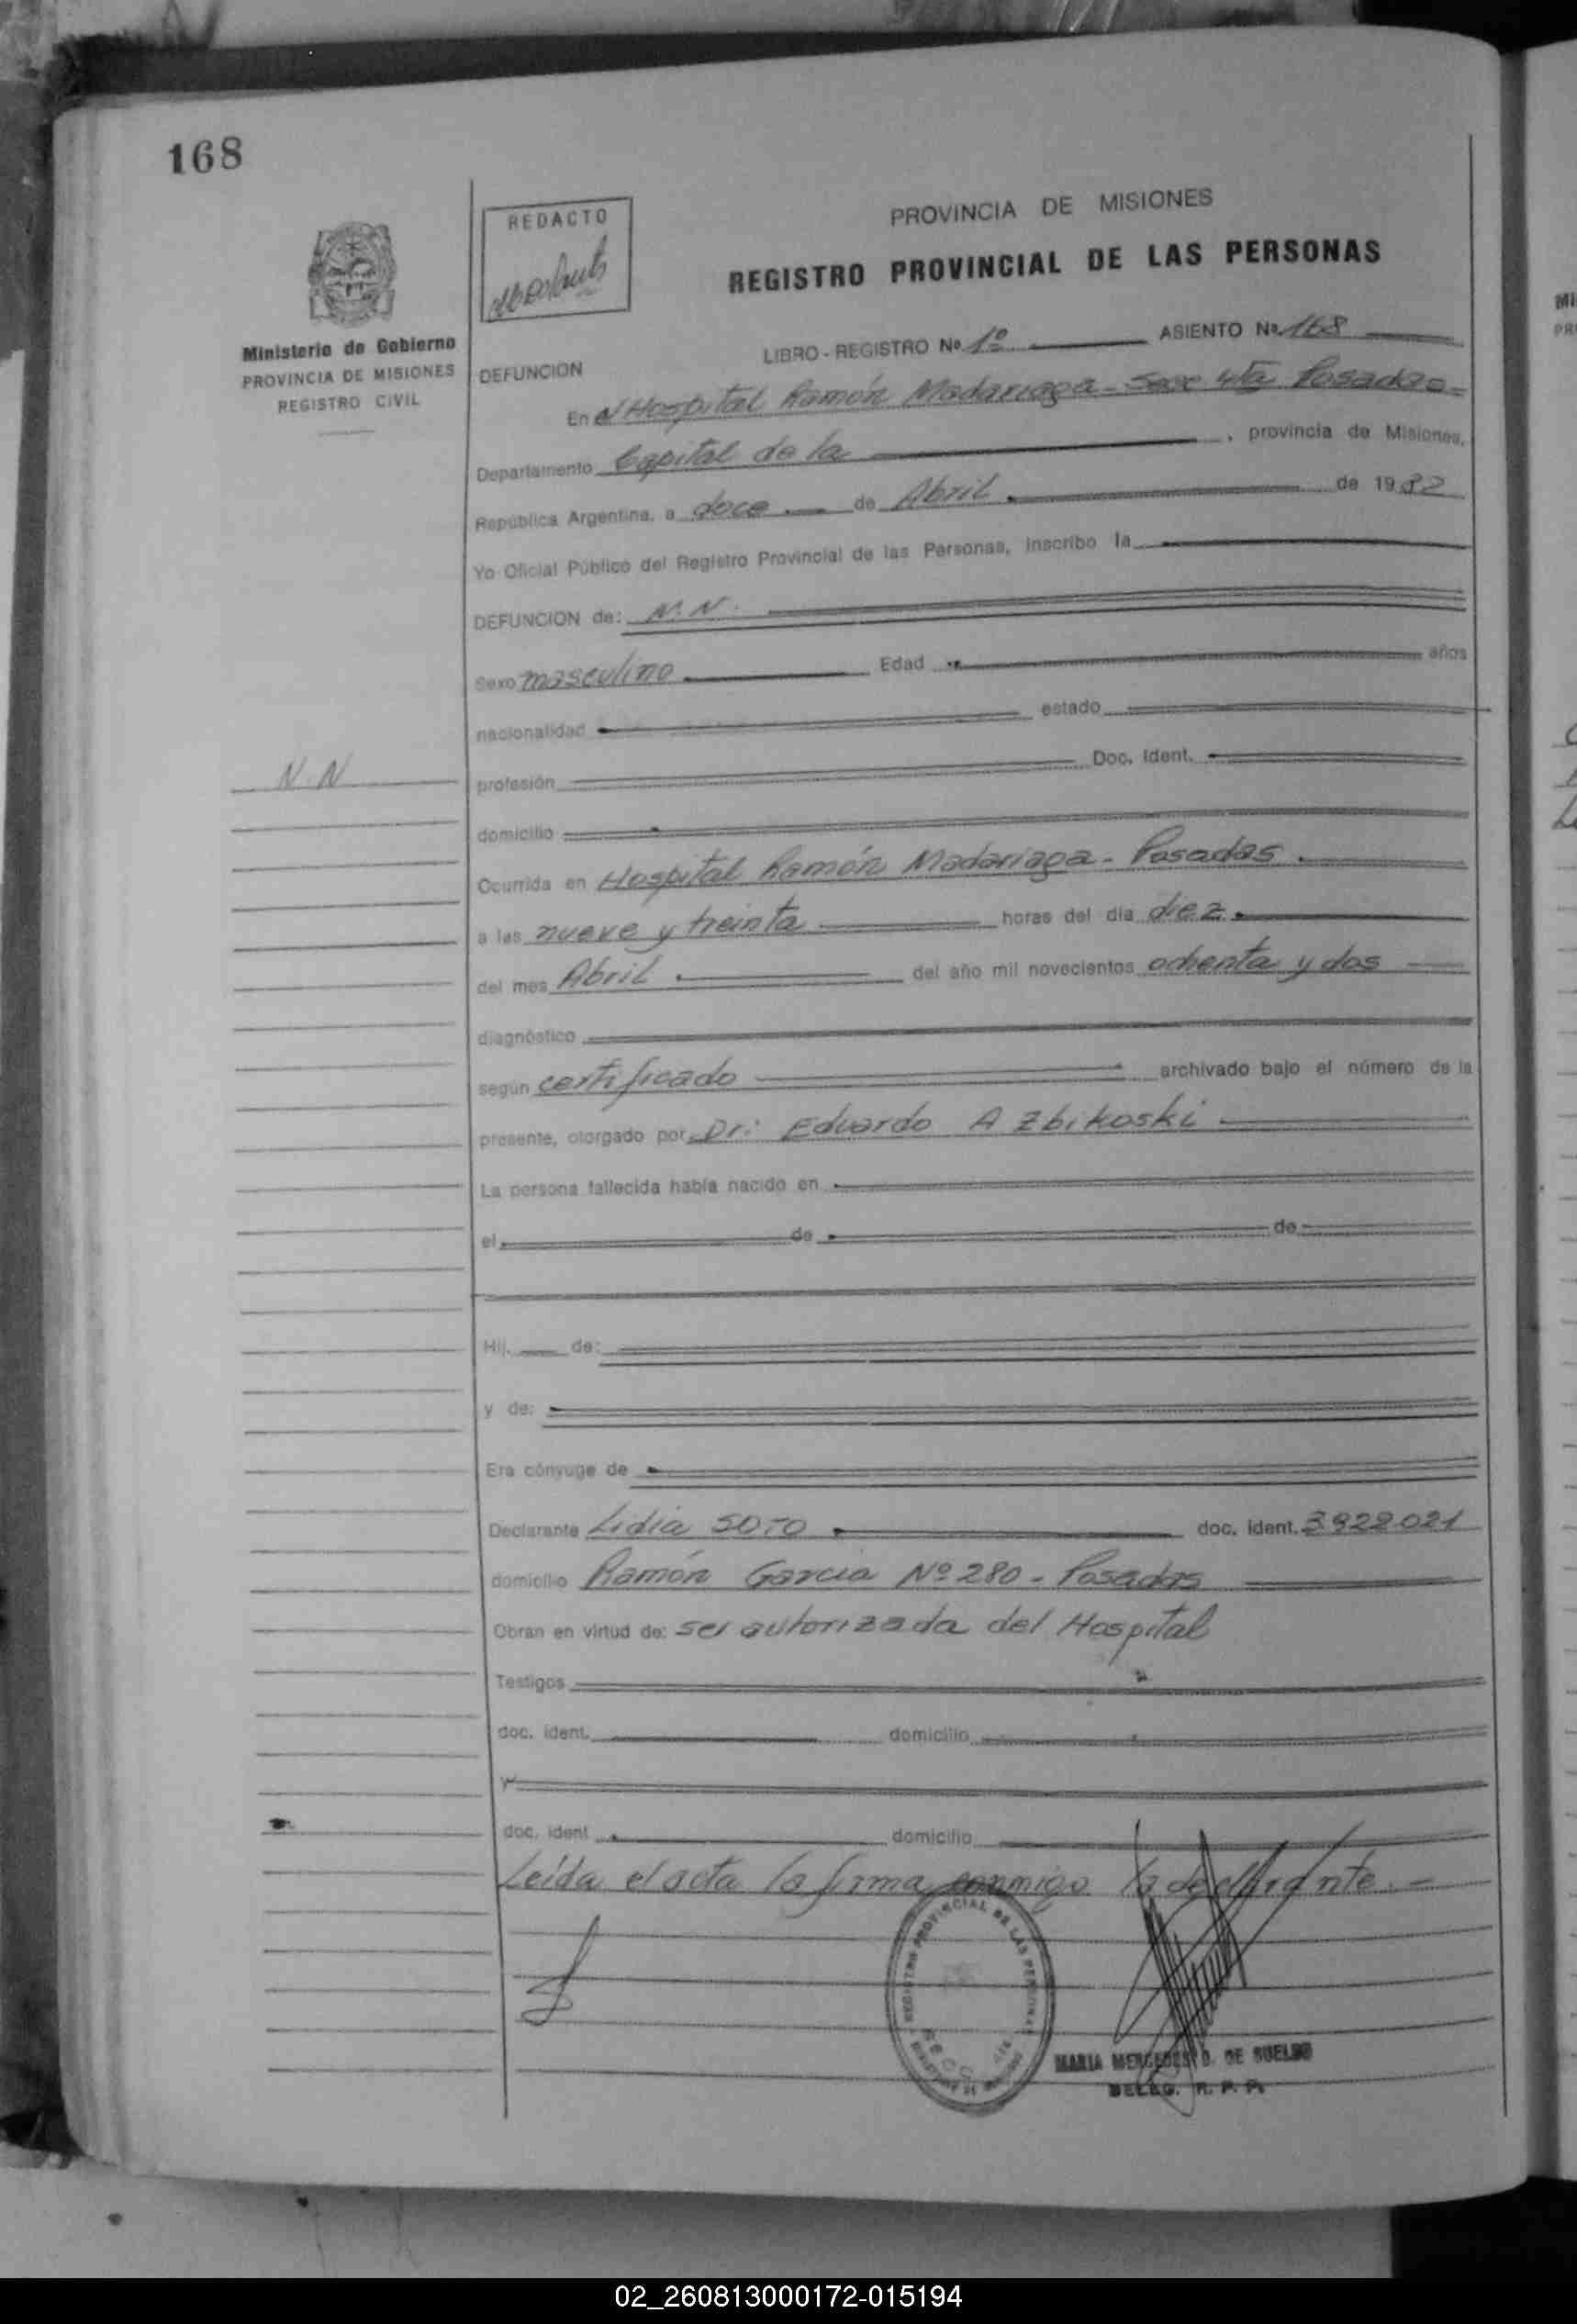 168
REDACTO
PROVINCIA DE MISIONES
REGISTRO PROVINCIAL DE LAS PERSONAS
Ministerio de Gobierno
PROVINCIA DE MISIONES
REGISTRO CIVIL
LIBRO - REGISTRO Nº 1º ASIENTO Nº 168
DEFUNCION
En el Hospital Ramón Madariaga - Secc 4ta Posadas -
Departamento Capital de la , provincia de Misiones,
República Argentina, a doce de Abril de 1982
Yo Oficial Público del Registro Provincial de las Personas, inscribo la
DEFUNCION de: N.N.
Sexo masculino Edad años
nacionalidad estado
N.N
profesión Doc. Ident.
domicilio
Ocurrida en Hospital Ramón Madariaga - Posadas.
a las nueve y treinta horas del día diez
del mes Abril del año mil novecientos ochenta y dos
diagnóstico
según certificado archivado bajo el número de la
presente, otorgado por Dr: Eduardo A Zbikoski
La persona fallecida había nacido en
el de de
Hij. de:
y de:
Era cónyuge de
Declarante Lidia SOTO doc. ident. 3.922.021
domicilio Ramón Garcia Nº 280 - Posadas
Obran en virtud de: ser autorizada del Hospital
Testigos
doc. ident. domicilio
y
doc. ident domicilio
Leída el acta la firma conmigo la declarante. -
REGISTRO PROVINCIAL DE LAS PERSONAS
MARIA MERCEDES D. DE SUELDO
DELEG. R. P. P.
MI
PR
02_260813000172-015194